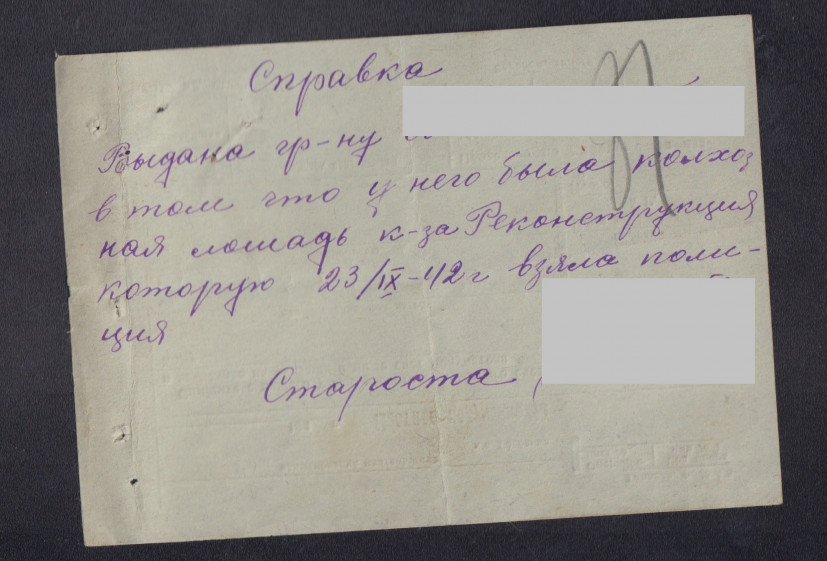 Справка
Выдана гр-ну
в том что у него была колхоз
ная лошадь к-за Реконструкция
которую 23/IX-42 г взяла поли-
ция
Староста